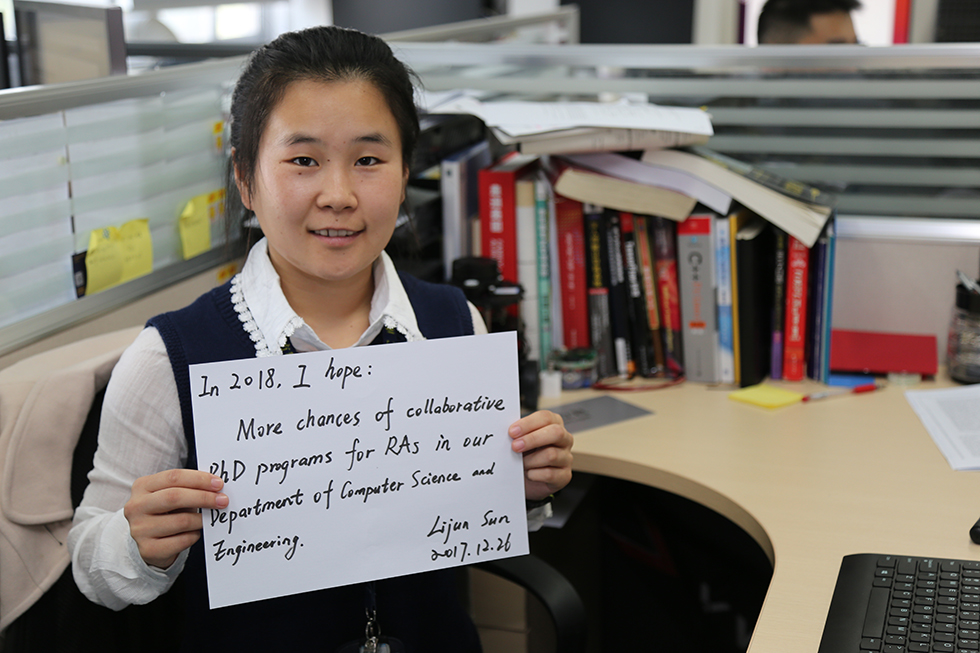 In 2018, I hope:
More chances of collaborative
PhD programs for RAs in our
Department of Computer Science and
Engineering.
Lijun Sun
2017.12.26
C++